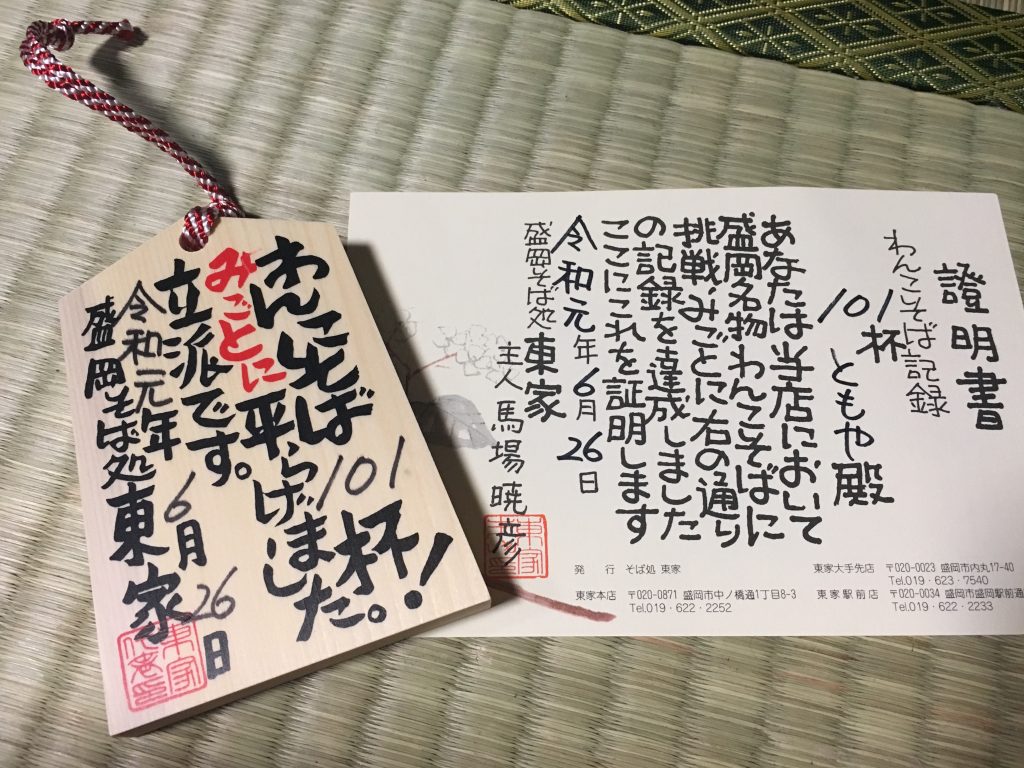 わんこそば
101杯!
みごとに平らげました。
立派です。
令和元年6月26日
盛岡そば処東家
證明書
わんこそば記録
101杯
ともや殿
あなたは当店において
盛岡名物わんこそばに
挑戦、みごとに右の通り
の記録を達成しました
ここにこれを証明します
令和元年6月26日
盛岡そば処東家
主人馬場暁彦
発 行 そば処 東家
東家本店 〒020-0871 盛岡市中ノ橋通1丁目8-3
Tel.019・622・2252
東家大手先店 〒020-0023 盛岡市内丸17-40
Tel.019・623・7540
東家駅前店 〒020-0034 盛岡市盛岡駅前通
Tel.019・622・2233